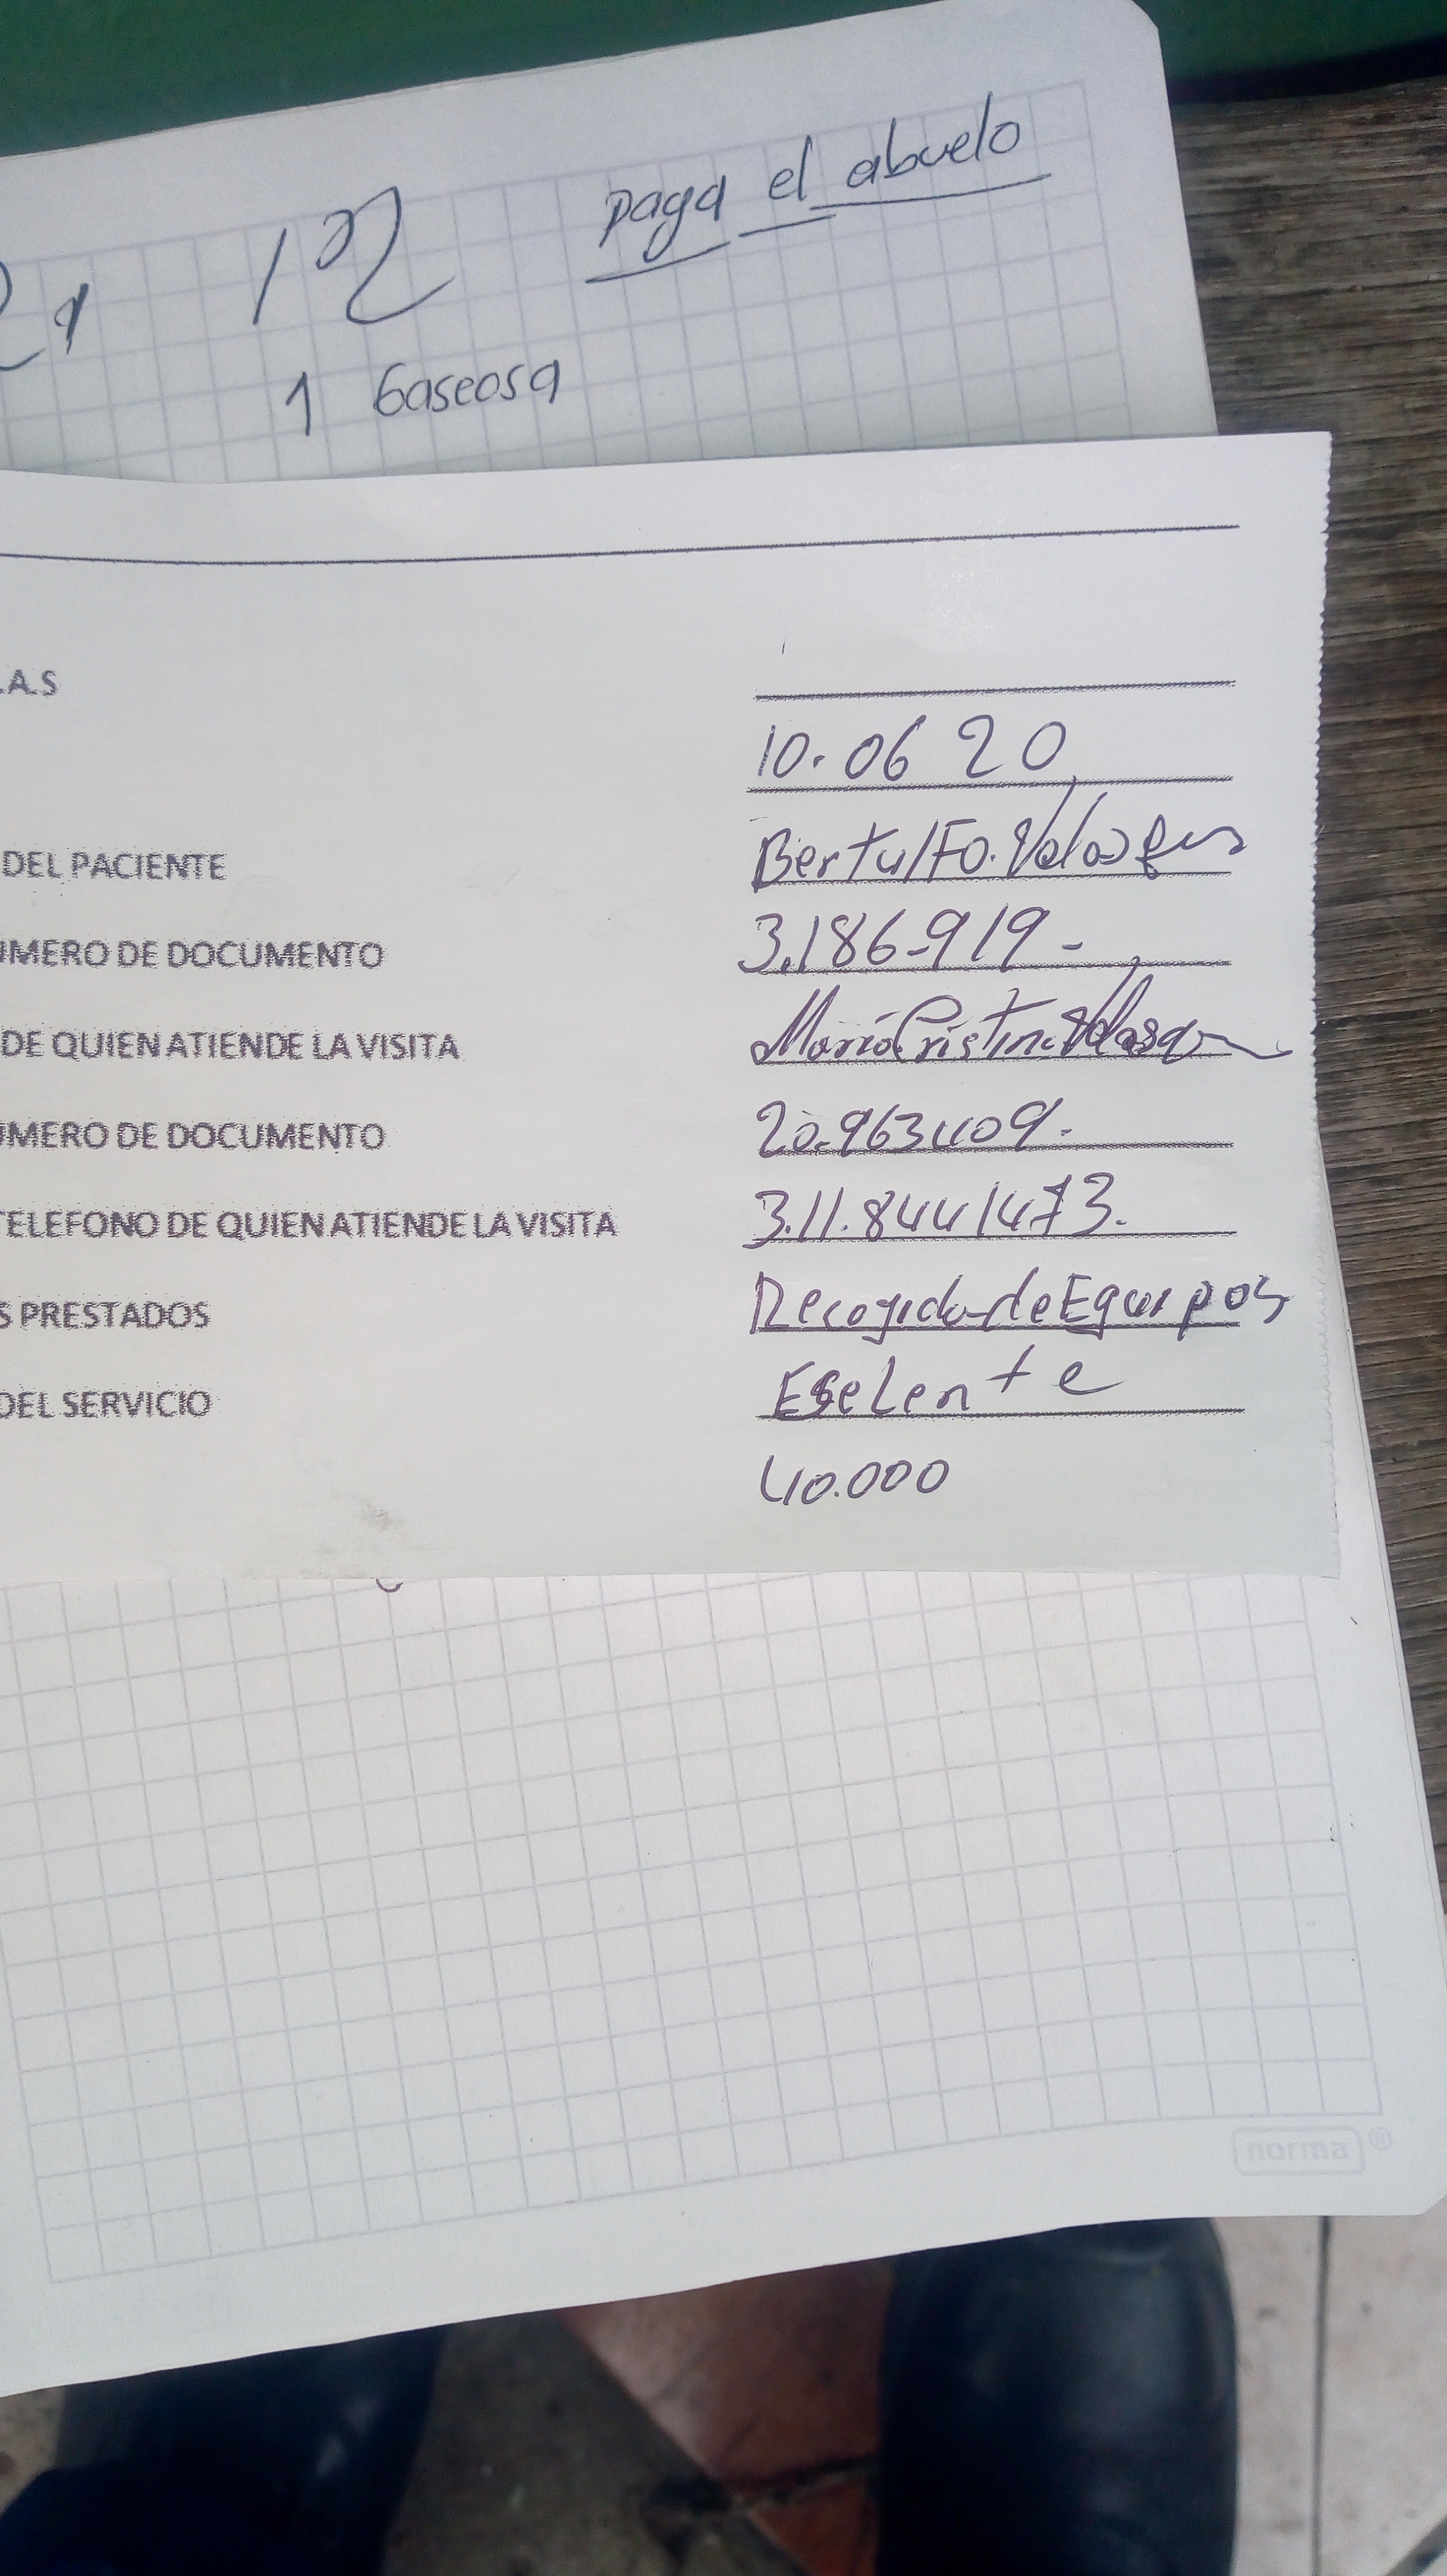 paga el abuelo
1
1 Gaseosa
.A.S
10.06 20
DEL PACIENTE Bertulfo. Velasques
UMERO DE DOCUMENTO 3.186-919-
DE QUIEN ATIENDE LA VISITA Maria Cristina Velasq
UMERO DE DOCUMENTO 20.963409.
TELEFONO DE QUIEN ATIENDE LA VISITA 3.11.8441473.
S PRESTADOS Recogida de Equipos
DEL SERVICIO Eselente
40.000
norma®